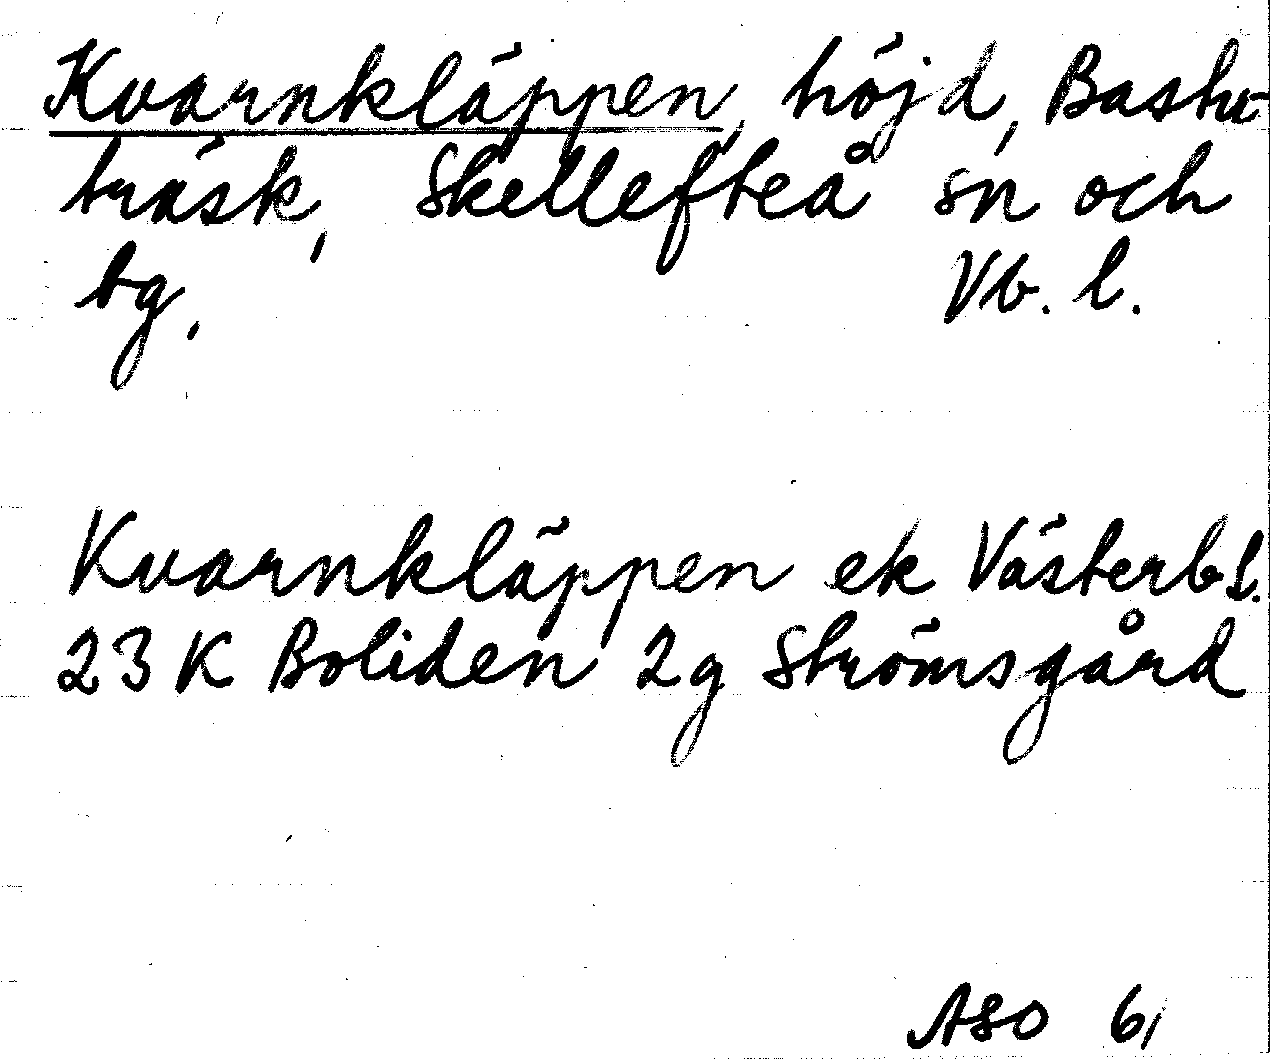 Kvarnkläppen, höjd, Bastu-
träsk, Skellefteå sn och
bg, Vb. l.
Kvarnkläppen ek Västerb l.
23 K Boliden 2g Strömsgård
ASO 61